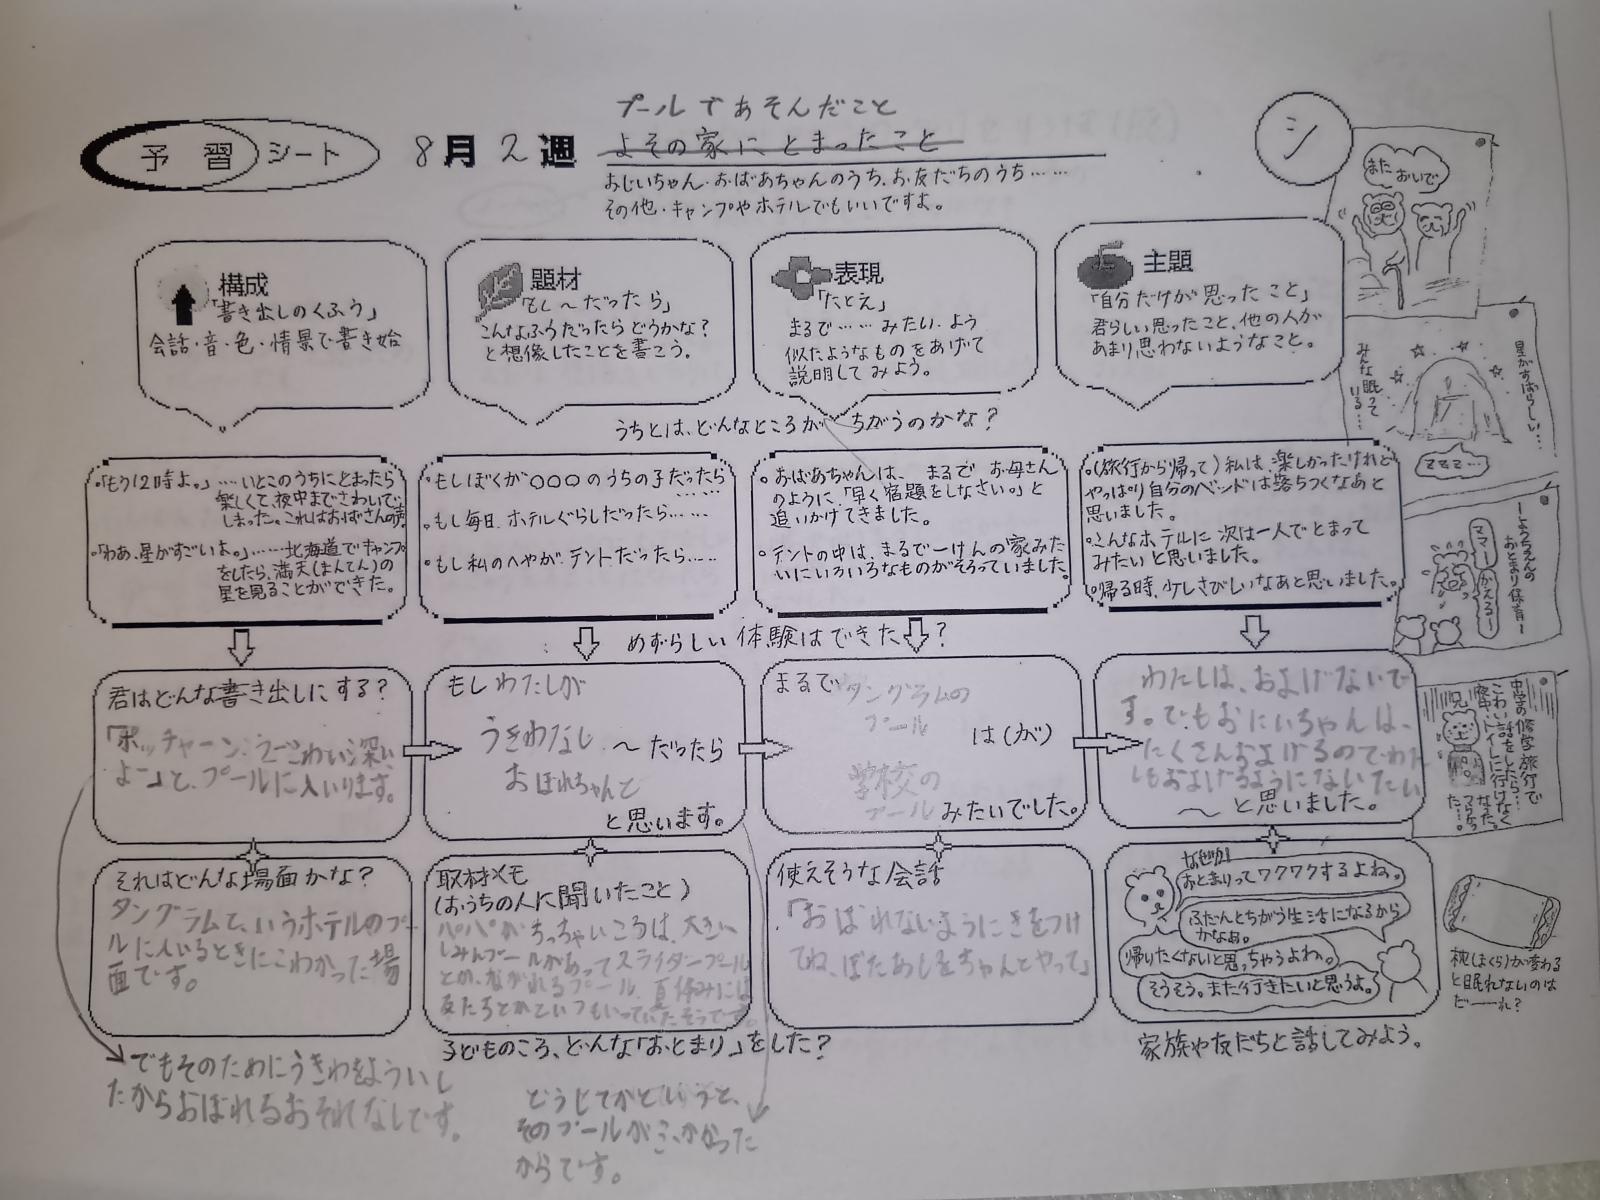 プールであそんだこと
予習シート 8月2週 よその家にとまったこと
シ
おじいちゃん・おばあちゃんのうち、お友だちのうち……
その他・キャンプやホテルでもいいですよ。
構成
「書き出しのくふう」
会話・音・色・情景で書き始
題材
「もし〜だったら」
こんなふうだったらどうかな?
と想像したことを書こう。
表現
「たとえ」
まるで……みたい、よう
似たようなものをあげて
説明してみよう。
主題
「自分だけが思ったこと」
君らしい思ったこと、他の人が
あまり思わないようなこと。
また
おいで
星がすばらしい…
みんな眠って
いる…
ZZZ…
うちとは、どんなところがちがうのかな?
・「もう12時よ。」…いとこのうちにとまったら
楽しくて、夜中までさわいで
しまった。これはおばさんの声
・「わあ、星がすごいよ。」……北海道でキャンプ
をしたら、満天(まんてん)の
星を見ることができた。
・もしぼくが〇〇〇のうちの子だったら
……
・もし毎日、ホテルぐらしだったら……
・もし私のへやが、テントだったら……
・おばあちゃんは、まるでお母さん
のように、「早く宿題をしなさい。」と
追いかけてきました。
・テントの中は、まるで一けんの家みた
いにいろいろなものがそろっていました。
・(旅行から帰って)私は、楽しかったけれど
やっぱり自分のベッドは落ちつくなあと
思いました。
・こんなホテルに次は一人でとまって
みたいと思いました。
・帰る時、少しさびしいなあと思いました。
ーようちえんの
おとまり保育ー
ママーかえるー
めずらしい体験はできた?
君はどんな書き出しにする?
よー」と、プールに入いります。
もしわたしが
うきわなし〜だったら
おぼれちゃんと
と思います。
まるでタングラムの
プール
は(が)
学校の
プールみたいでした。
わたしは、およげないで
す。でもおにいちゃんは、
たくさんおよげるのでわた
しもおよげるようにないたい
〜と思いました。
中学の修学旅行で
こわい話をしたら…
夜中、トイレに行けなく
なった。
つらかっ
た…。
兄
それはどんな場面かな?
タングラムて、いうホテルのプー
ルに入いるときにこわかった場
面です。
取材メモ
(おうちの人に聞いたこと)
パパがちっちゃいころは、大きい
しみんプールがあってスライダープール
とか、ながれるプール、夏休みには
友だちとかといつもいっていたそうです。
使えそうな会話
「おぼれないようにきをつけ
てね、ばたあしをちゃんとやって」
なぜか
おとまりってワクワクするよね。
ふだんとちがう生活になるから
かなあ。
帰りたくないと思っちゃうよね。
そうそう。また行きたいと思うよ。
枕(まくら)が変わる
と眠れないのは
だーれ?
子どものころ、どんな「おとまり」をした?
家族や友だちと話してみよう。
でもそのためにうきわをよういし
たからおぼれるおそれなしです。
どうしてかというと、
そのプールがふかかった
からです。